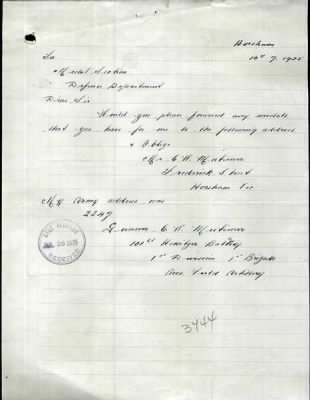 Horsham
10th 7. 1925
To
Medal Section
Defence Department
Dear Sir
Would you please forward any medals
that you have for me to the following address
& Oblige
Mr C H Mutimer
Frederick Street
Horsham Vic
My Army address was
2247
Gunner C H Mutimer
101st Howitzer Battery
1st Division 1st Brigade
Aus Field Artillery
RECEIVED
3744